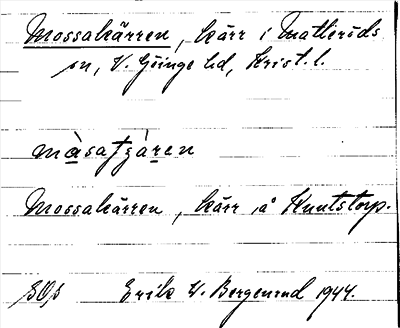 Mossakärren, kärr i Matteröds
sn, V. Göinge hd, Krist. l.
màsatʃæ̀ren
Mossakärren, kärr å Knutstorp.
SOS Erik W. Bergenrud 1944.